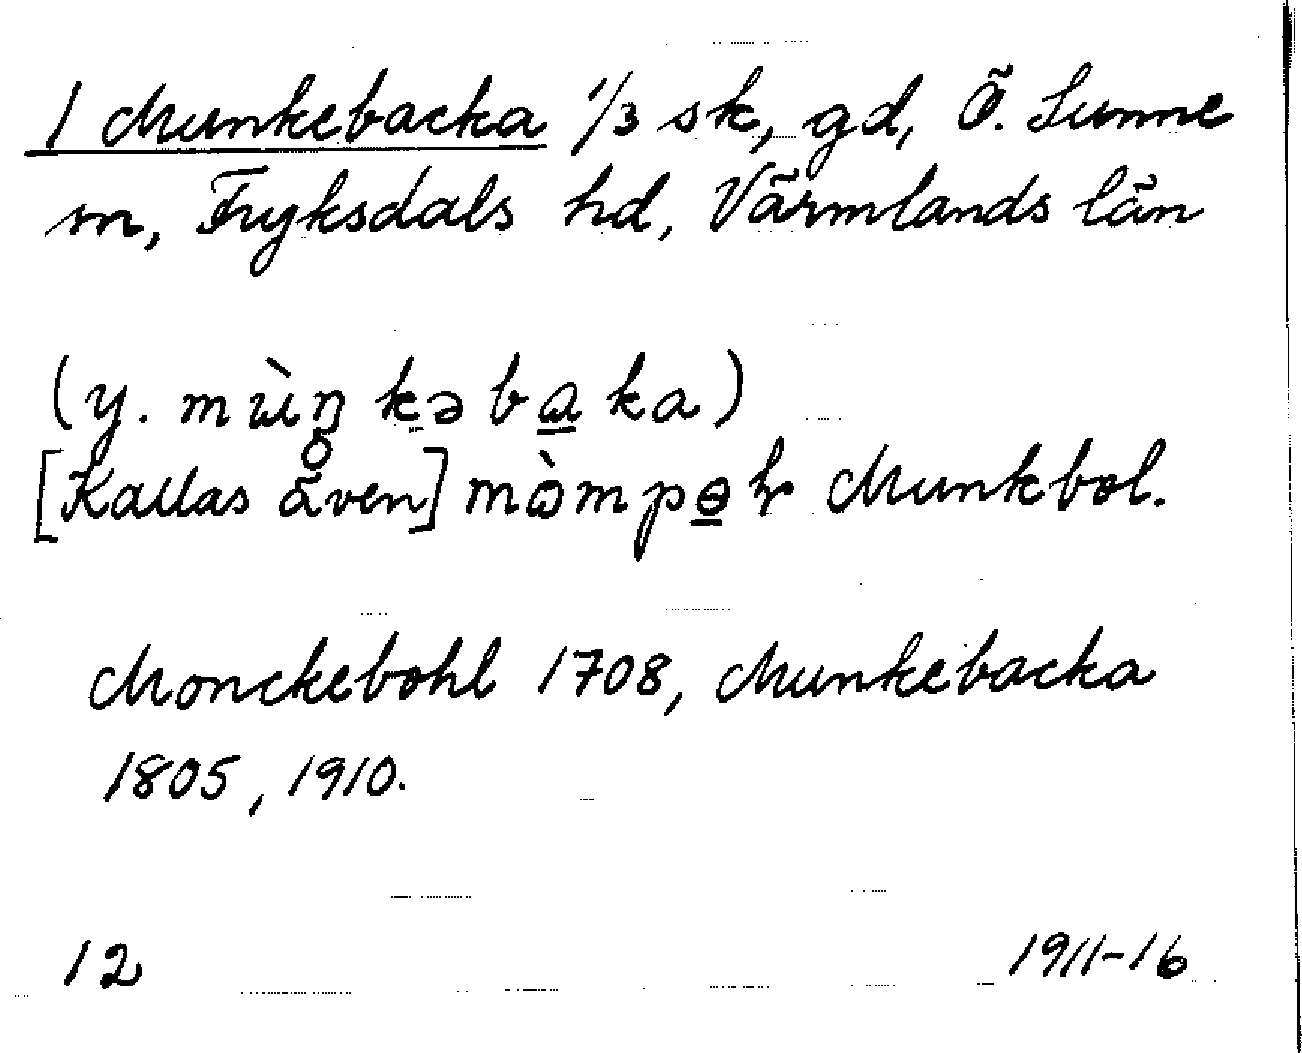 1 Munkebacka 1/3 sk, gd, Ö. Sunne
sn, Fryksdals hd, Värmlands län
(y. mùŋkəba̲ka)
[Kallas även] mɷ̀mpɵ̲ɽ Munkbol.
Monckebohl 1708, Munkebacka
1805, 1910.
12 1911-16